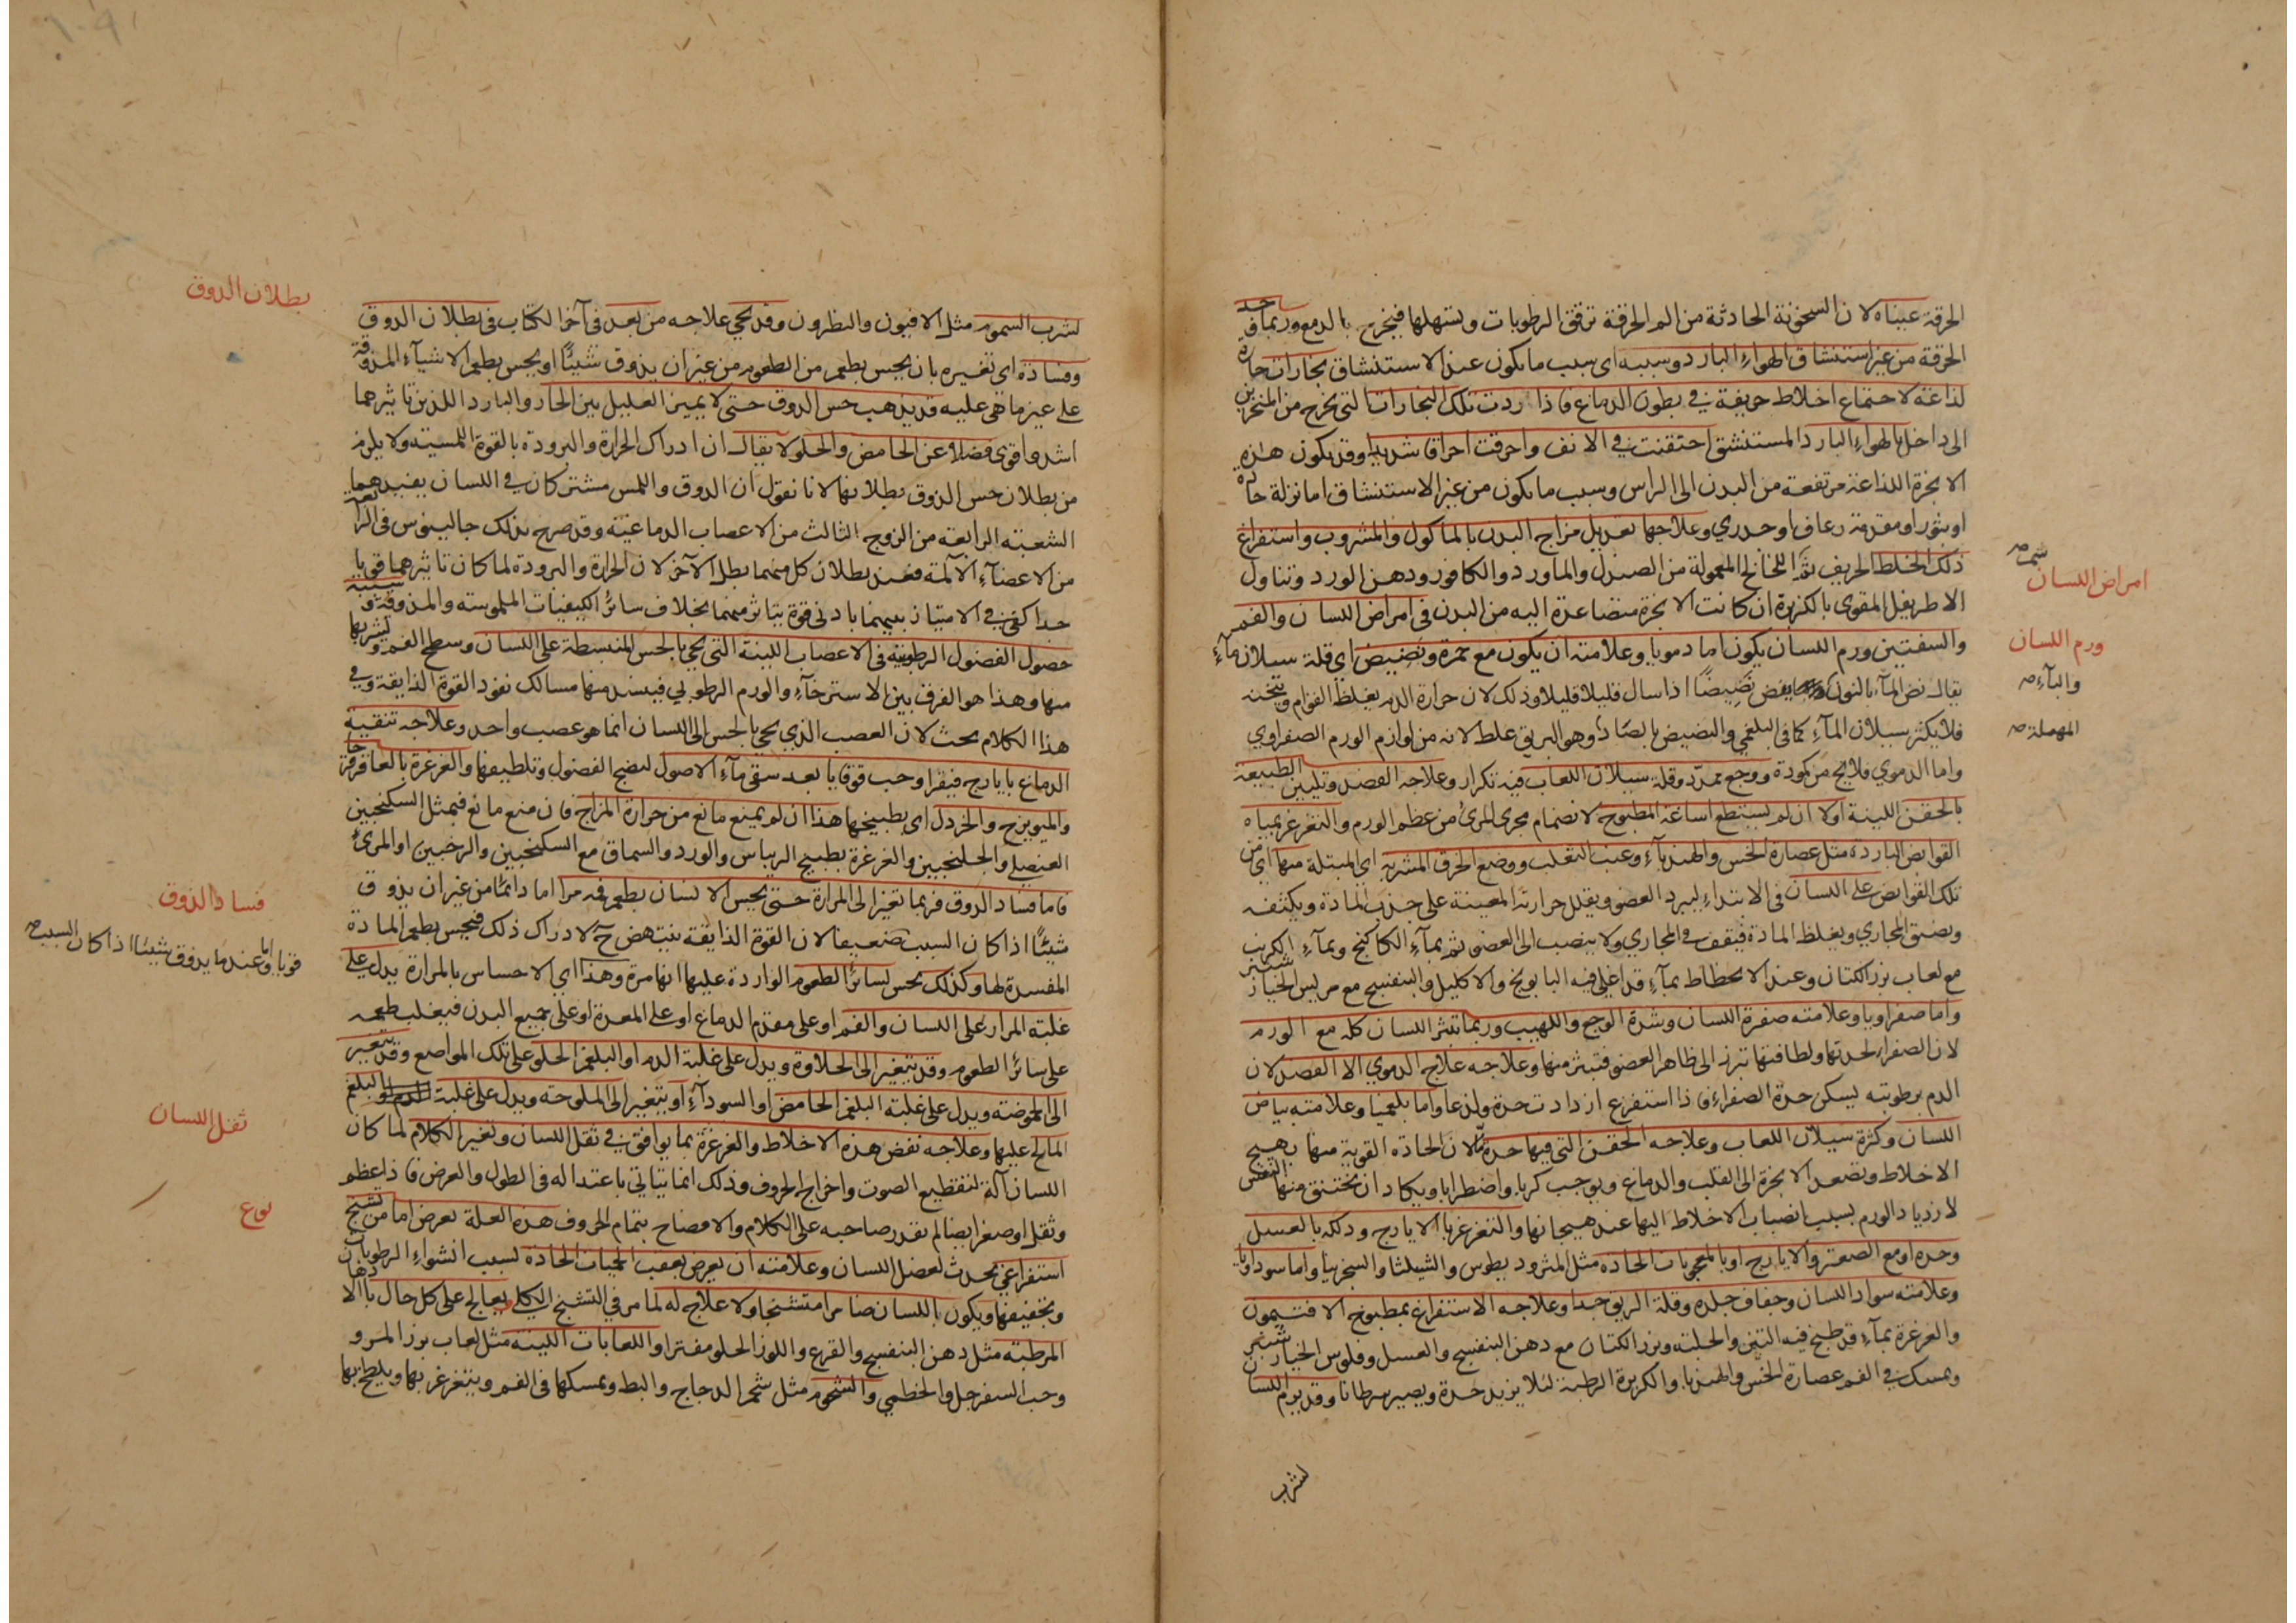 الحرقة عيناه لان السخونة الحادثة من الم الحرقة ترقق الرطوبات وتسهلها فيخرج بالدمع وربما حد
الحرقة من غير استنشاق الهواء البارد وسببه اى سبب ما يكون عند الاستنشاق بخارات حارة
لذاعة لاجتماع اخلاط حريفة في بطون الدماغ فاذا ردت تلك البخارات التي تخرج من المنخرين
الى داخل بالهواء البارد المستنشق احتقنت في الانف واحرقت احراقا شديدا وقد يكون هذه
الابخرة اللذاعة مرتفعة من البدن الى الراس وسبب ما يكون من غير الاستنشاق اما نزلة حارة
او بثور او مقدمة رعاف او جدري وعلاجها تعديل مزاج البدن بالماكول والمشروب واستفراغ
ذلك الخلط الحريف ثم اللخالخ المعمولة من الصندل والماورد والكافور ودهن الورد وتناول
شم
الاطريفل المقوى بالكزبرة ان كانت الابخرة متصاعدة اليه من البدن في امراض اللسان والفم
امراض اللسان
والشفتين ورم اللسان يكون اما دمويا وعلامته ان يكون مع حمرة ونضيض اى قلة سيلان ماء
ورم اللسان
يقال نض الماء بالنون ينض نضيضا اذا سال قليلا قليلا وذلك لان حرارة الدم يغلظ القوام ويثخنه
والباء
فلا يكثر سيلان الماء كما في البلغمي والبضيض بالصاد وهو البريق غلط لانه من لوازم الورم الصفراوي
المهملة
واما الدموي فلا يخ من كمودة ووجع تمدد وقلة سيلان اللعاب فيه تكرار وعلاجه الفصد وتليين الطبيعة
بالحقن اللينة اولا ان لم يستطع اساغة المطبوخ لانضمام مجرى المرئ من عظم الورم والتغرغر بمياه
القوابض الباردة مثل عصارة الخس والهندباء وعنب الثعلب ووضع الخرق المشربة اى المبتلة منها اى من
تلك القوابض على اللسان في الابتداء ليبرد العضو ويقلل حرارته المعينة على جذب المادة ويكثفه
ويضيق المجاري ويغلظ المادة فيقف في المجاري ولا ينصب الى العضو ثم بماء الكاكنج وبماء الكرنب
مع لعاب بزر الكتان وعند الانحطاط بماء قد اغلي فيه البابونج والاكليل والبنفسج مع مريس الخيار شنبر
واما صفراويا وعلامته صفرة اللسان وشدة الوجع واللهيب وربما تبثر اللسان كله مع الورم
لان الصفراء لحدتها ولطافتها تبرز الى ظاهر العضو فتبثر منها وعلاجه علاج الدموي الا الفصد لان
الدم برطوبته يسكن حدة الصفراء فاذا استفرغ ازدادت حدة ولذعا واما بلغميا وعلامته بياض
اللسان وكثرة سيلان اللعاب وعلاجه الحقن التي فيها حدة ما لان الحادة القوية منها يهيج
الاخلاط وتصعد الابخرة الى القلب والدماغ ويوجب كربا واضطرابا ويكاد ان يختنق منها النفس
لازدياد الورم بسبب انصباب الاخلاط اليها عند هيجانها والتغرغر بالايارج ودلكه بالعسل
وحده او مع الصعتر والايارج او بالمعجونات الحادة مثل المثروديطوس والشيلثا والسجزنيا واما سوداويا
وعلامته سواد اللسان وجفاف جلده وقلة الريق جدا وعلاجه الاستفراغ بمطبوخ الافتيمون
والغرغرة بماء قد طبخ فيه التين والحلبة وبزر الكتان مع دهن البنفسج والعسل وفلوس الخيار شنبر
ويمسك في الفم عصارة الخس والهندبا والكزبرة الرطبة لئلا يزيد حدة ويصير سرطانا وقد يورم اللسان
لشرب
لشرب السموم مثل الافيون والنظرون وقد يجي علاجه من بعد في آخر الكتاب في بطلان الذوق
بطلان الذوق
وفساده اى تغيره بان يحس بطعم من الطعوم من غير ان يذوق شيئا او يحس بطعم الاشياء المذوقة
على غير ما هي عليه قد يذهب حس الذوق حتى لا يميز العليل بين الحار والبارد اللذين تاثيرهما
اشد واقوى فضلا عن الحامض والحلو لا يقال ان ادراك الحرارة والبرودة بالقوة اللمسية ولا يلزم
من بطلان حس الذوق بطلانها لانا نقول ان الذوق واللمس مشتركان في اللسان يفيدهما
الشعبة الرابعة من الزوج الثالث من الاعصاب الدماغية وقد صرح بذلك جالينوس في الرابعة
من الاعضاء الآلمة فعند بطلان كل منهما بطل الآخر لان الحرارة والبرودة لما كان تاثيرهما قويا
جدا كفى في الامتياز بينهما بادنى قوة يتاثر منهما بخلاف سائر الكيفيات الملموسة والمذوقة وسببه
حصول الفضول الرطوبية في الاعصاب اللينة التي تجي بالحس المنبسطة على اللسان وسطح الفم وتشربها
منها وهذا هو الفرق بين الاسترخاء والورم الرطوبي فيسد منها مسالك نفوذ القوة الذايقة وفي
هذا الكلام بحث لان العصب الذي يجي بالحس الى اللسان انما هو عصب واحد وعلاجه تنقية
الدماغ بايارج فيقرا وحب قوقايا بعد سقي ماء الاصول لنضج الفضول وتلطيفها والغرغرة بالعاقرقرحا
والميويزج والخردل اى بطبيخها هذا ان لم يمنع مانع من حرارة المزاج فان منع مانع فبمثل السكنجبين
العنصلي والجلنجبين والغرغرة بطبيخ الريباس والورد والسماق مع السكنجبين والرخبين او المرئ
فاما فساد الذوق فربما تغير الى المرارة حتى يحس الانسان بطعم فمه مرا اما دائما من غير ان يذوق
فساد الذوق
شيئا اذا كان السبب ضعيفا لان القوة الذايقة ينتهض ح لادراك ذلك فيحس بطعم المادة
قويا واما عند ما يذوق شيئا اذا كان السبب
المفسدة لها وكذلك يحس لسائر الطعوم الواردة عليها انها مرة وهذا اي الاحساس بالمرارة يدل على
غلبة المرار على اللسان والفم او على مقدم الدماغ او على المعدة او على جميع البدن فيغلب طعمه
على سائر الطعوم وقد يتغير الى الحلاوة ويدل على غلبة الدم او البلغم الحلو على تلك المواضع وقد يتغير
الى الحموضة ويدل على غلبة البلغم الحامض او السوداء او يتغير الى الملوحة ويدل على غلبة البلغم
المالح عليها وعلاجه نفض هذه الاخلاط والغرغرة بما يوافق في ثقل اللسان وتغير الكلام لما كان
ثقل اللسان
اللسان آلة لتقطيع الصوت واخراج الحروف وذلك انما يتاتي باعتداله في الطول والعرض فاذا عظم
وثقل او صغر ايضا لم يقدر صاحبه على الكلام والافصاح بتمام الحروف هذه العلة تعرض اما من تشنج
نوع
استفراغي يحدث لعضل اللسان وعلامته ان يعرض بعقب الحميات الحادة لسبب انشواء الرطوبات
وتجفيفها ويكون باللسان ضامرا متشنجا ولا علاج له لما مر في التشنج اليبسي يعالج على كل حال بالادهان
المرطبة مثل دهن البنفسج والقرع واللوز الحلو مفترا واللعابات اللينة مثل لعاب بزر المرو
وحب السفرجل والخطمي والشحوم مثل شحم الدجاج والبط ويمسكها في الفم ويتغرغر بها ويلطخ بها